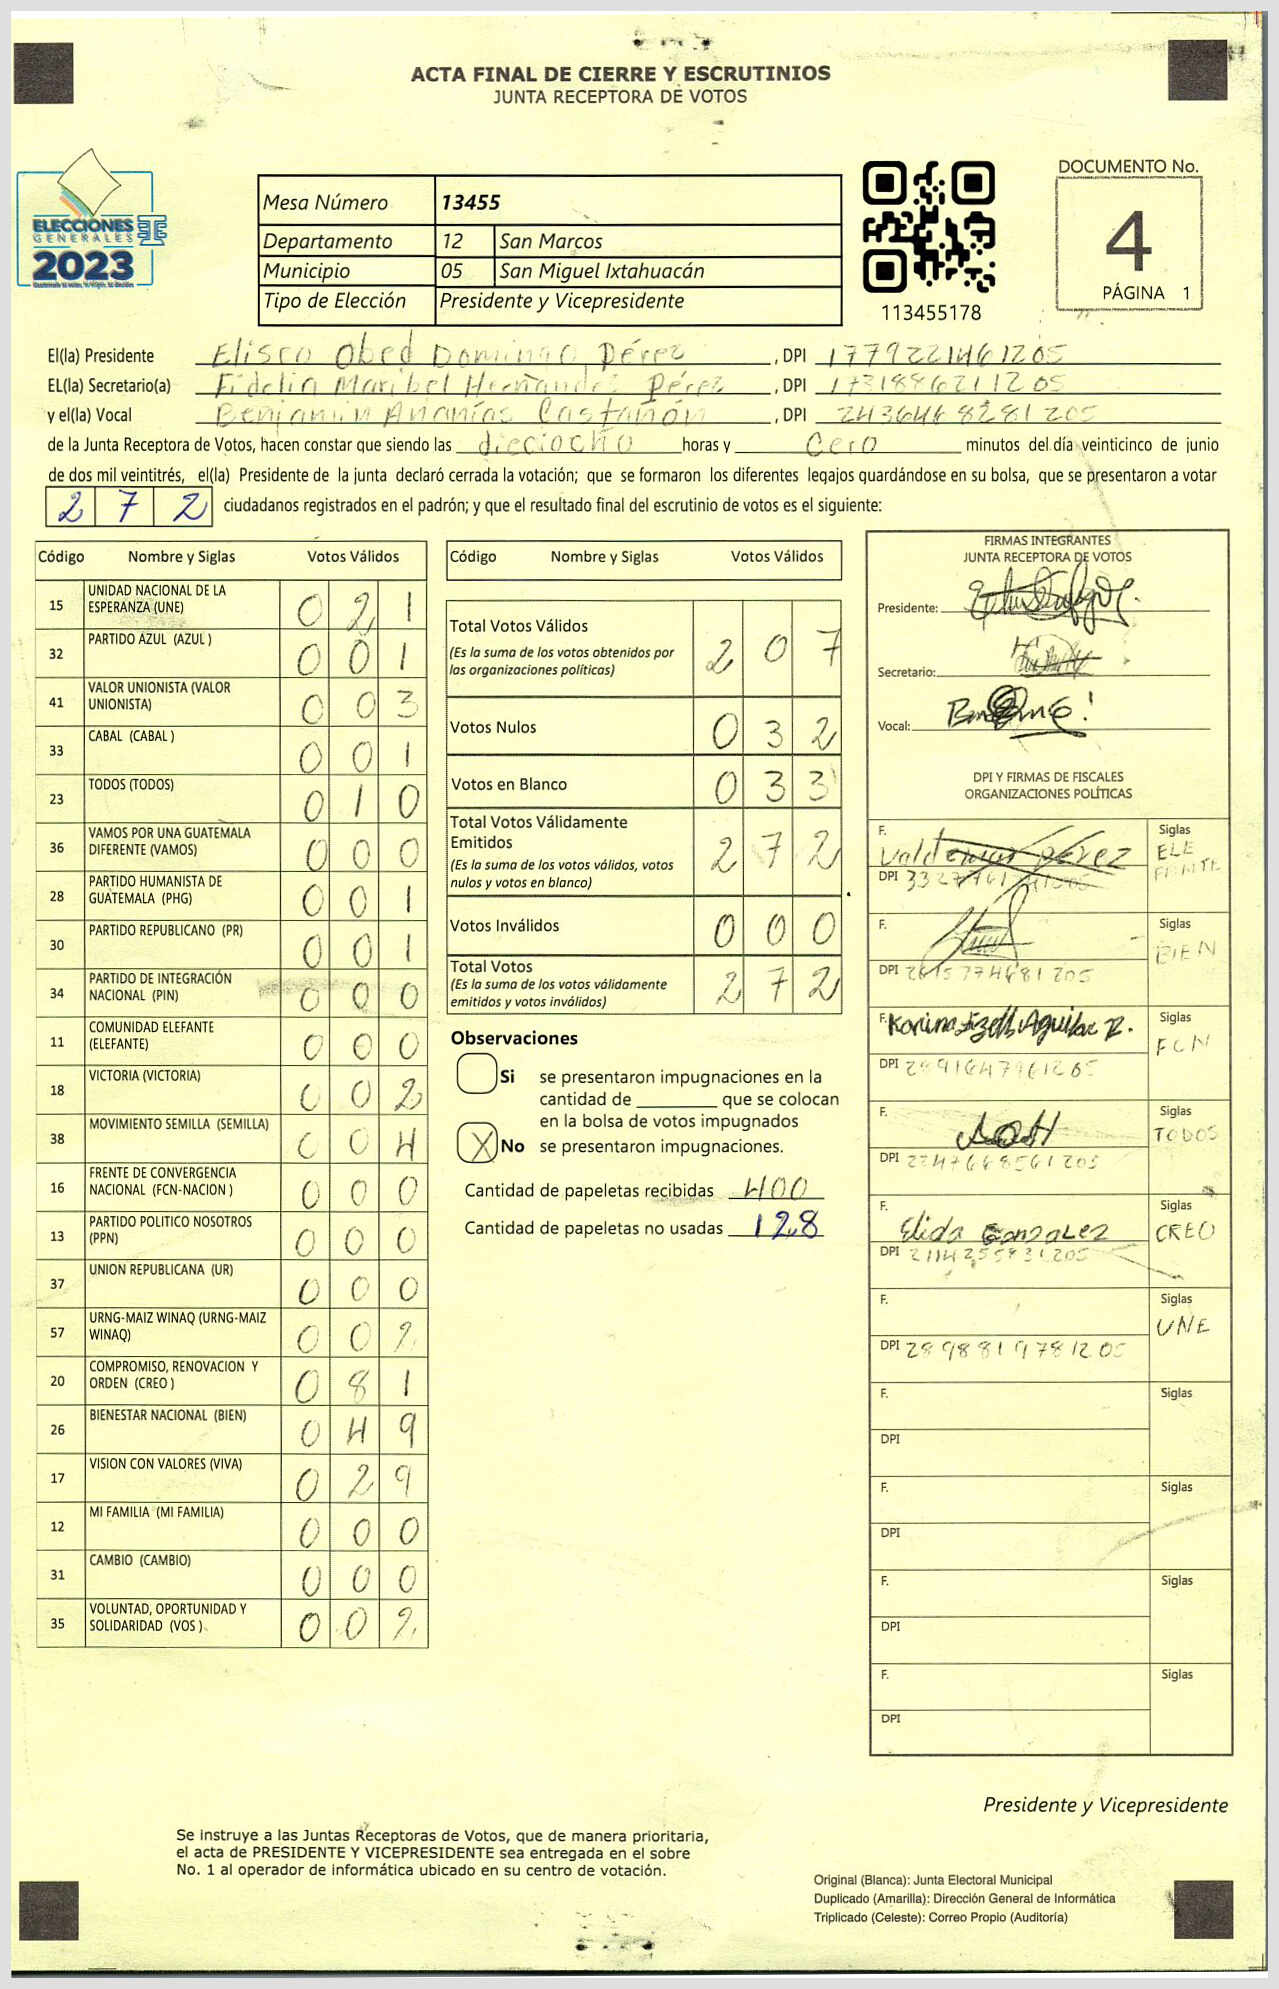 ACTA FINAL DE CIERRE Y ESCRUTINIOS
JUNTA RECEPTORA DE VOTOS
ELECCIONES
GENERALES
2023
Mesa Número 13455
Departamento 12 San Marcos
Municipio 05 San Miguel Ixtahuacán
Tipo de Elección Presidente y Vicepresidente
113455178
DOCUMENTO No.
4
PÁGINA 1
El(la) Presidente Eliseo Obed Domingo Pérez, DPI 1779221461205
EL(la) Secretario(a) Fidelia Maribel Hernandez Pérez, DPI 1731886211205
y el(la) Vocal Benjamín Ananías Castañón, DPI 2436468281205
de la Junta Receptora de Votos, hacen constar que siendo las dieciocho horas y cero minutos del día veinticinco de junio
de dos mil veintitrés, el(la) Presidente de la junta declaró cerrada la votación; que se formaron los diferentes legajos quardándose en su bolsa, que se presentaron a votar
2 7 2 ciudadanos registrados en el padrón; y que el resultado final del escrutinio de votos es el siguiente:
Código Nombre y Siglas Votos Válidos
15 UNIDAD NACIONAL DE LA ESPERANZA (UNE) 0 2 1
32 PARTIDO AZUL (AZUL ) 0 0 1
41 VALOR UNIONISTA (VALOR UNIONISTA) 0 0 3
33 CABAL (CABAL ) 0 0 1
23 TODOS (TODOS) 0 1 0
36 VAMOS POR UNA GUATEMALA DIFERENTE (VAMOS) 0 0 0
28 PARTIDO HUMANISTA DE GUATEMALA (PHG) 0 0 1
30 PARTIDO REPUBLICANO (PR) 0 0 1
34 PARTIDO DE INTEGRACIÓN NACIONAL (PIN) 0 0 0
11 COMUNIDAD ELEFANTE (ELEFANTE) 0 0 0
18 VICTORIA (VICTORIA) 0 0 2
38 MOVIMIENTO SEMILLA (SEMILLA) 0 0 4
16 FRENTE DE CONVERGENCIA NACIONAL (FCN-NACION ) 0 0 0
13 PARTIDO POLITICO NOSOTROS (PPN) 0 0 0
37 UNION REPUBLICANA (UR) 0 0 0
57 URNG-MAIZ WINAQ (URNG-MAIZ WINAQ) 0 0 2
20 COMPROMISO, RENOVACION Y ORDEN (CREO ) 0 8 1
26 BIENESTAR NACIONAL (BIEN) 0 4 9
17 VISION CON VALORES (VIVA) 0 2 9
12 MI FAMILIA (MI FAMILIA) 0 0 0
31 CAMBIO (CAMBIO) 0 0 0
35 VOLUNTAD, OPORTUNIDAD Y SOLIDARIDAD (VOS ) 0 0 2
Código Nombre y Siglas Votos Válidos
Total Votos Válidos 2 0 7
(Es la suma de los votos obtenidos por
las organizaciones políticas)
Votos Nulos 0 3 2
Votos en Blanco 0 3 3
Total Votos Válidamente
Emitidos 2 7 2
(Es la suma de los votos válidos, votos
nulos y votos en blanco)
Votos Inválidos 0 0 0
Total Votos 2 7 2
(Es la suma de los votos válidamente
emitidos y votos inválidos)
Observaciones
Si se presentaron impugnaciones en la
cantidad de ________ que se colocan
en la bolsa de votos impugnados
X No se presentaron impugnaciones.
Cantidad de papeletas recibidas 400
Cantidad de papeletas no usadas 128
FIRMAS INTEGRANTES
JUNTA RECEPTORA DE VOTOS
Presidente:
Secretario:
Vocal:
DPI Y FIRMAS DE FISCALES
ORGANIZACIONES POLÍTICAS
F. Valdemar Pérez Siglas ELEFANTE
DPI
F. Siglas BIEN
DPI 2615774681205
F. Karina Aguilar R. Siglas FCN
DPI 2891647961205
F. Siglas TODOS
DPI 2247668561205
F. Elida Gonzalez Siglas CREO
DPI 2114255831205
F. Siglas UNE
DPI 2898819781205
F. Siglas
DPI
F. Siglas
DPI
F. Siglas
DPI
F. Siglas
DPI
Presidente y Vicepresidente
Se instruye a las Juntas Receptoras de Votos, que de manera prioritaria,
el acta de PRESIDENTE Y VICEPRESIDENTE sea entregada en el sobre
No. 1 al operador de informática ubicado en su centro de votación.
Original (Blanca): Junta Electoral Municipal
Duplicado (Amarilla): Dirección General de Informática
Triplicado (Celeste): Correo Propio (Auditoría)